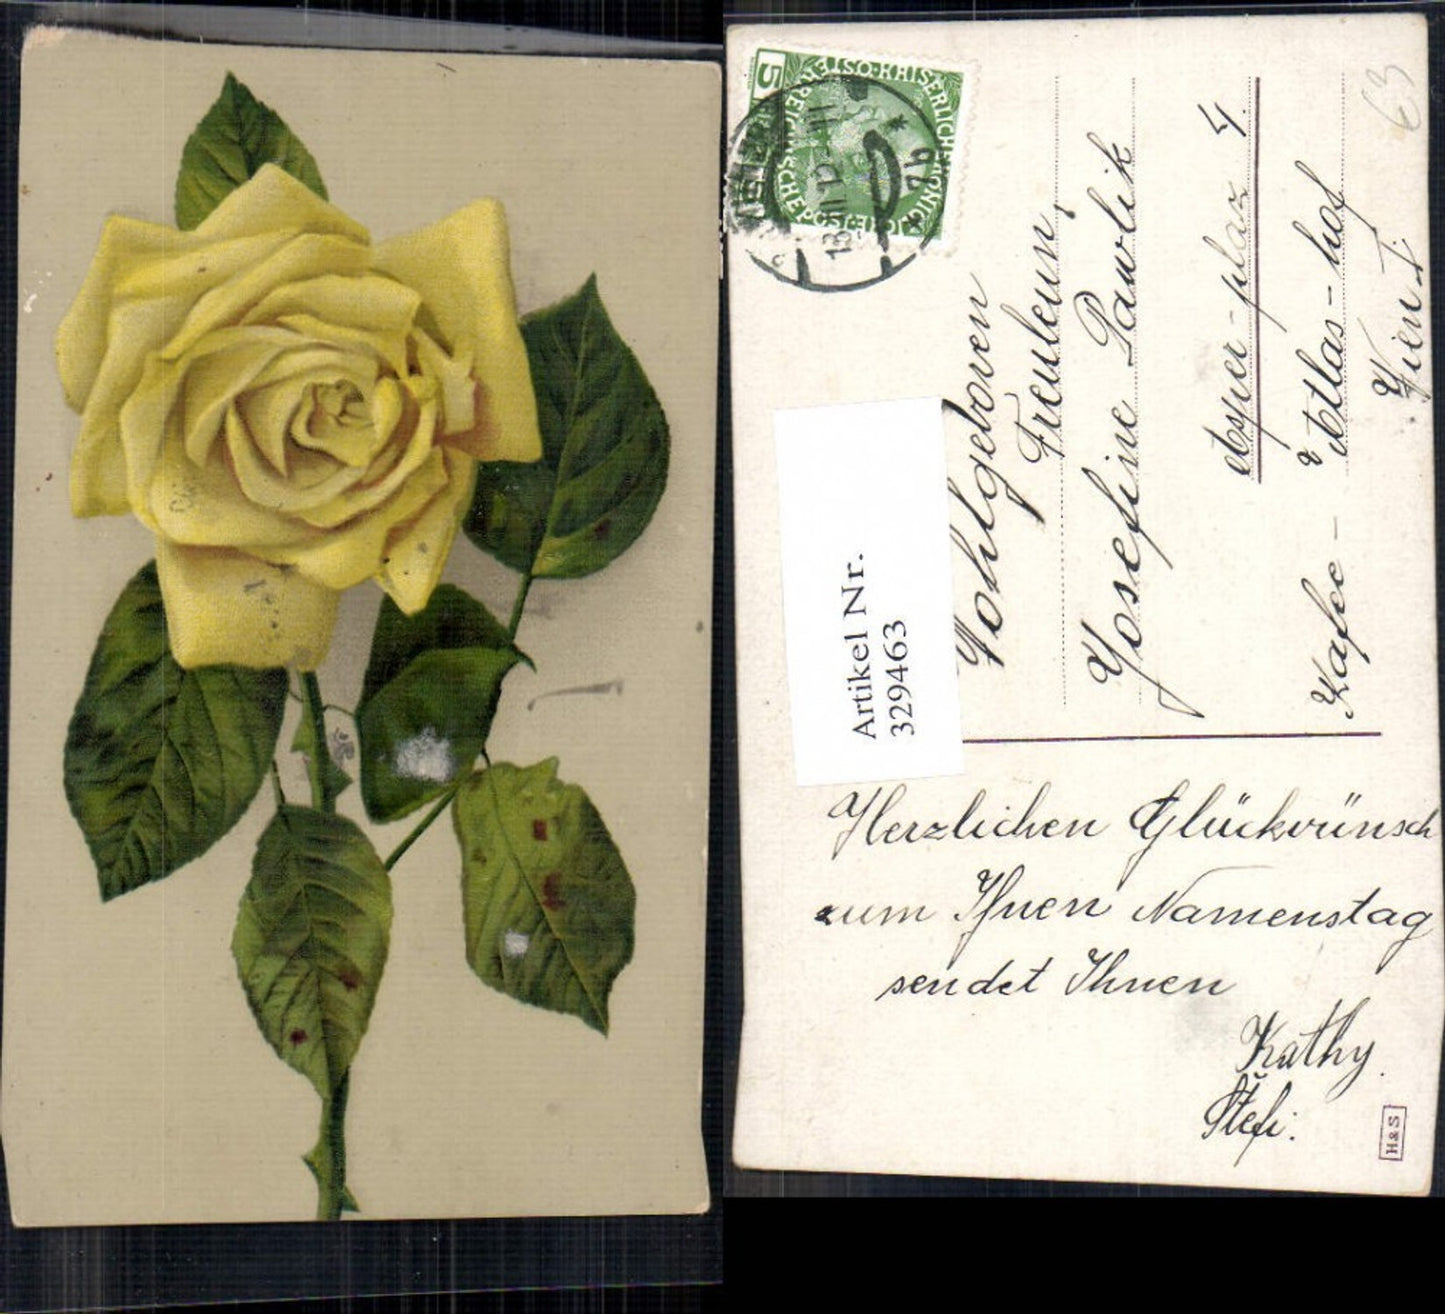 5
KAISERLICHE KÖNIGLICHE ÖSTERREICHISCHE POST
13.III.12 11
* 7b
Wohlgeboren
Freulein,
Josefine Pawlik
Asper-plaz 4.
Kafee - Attlas-hof
Wien I.
63
Artikel Nr.
329463
Herzlichen Glückwünsch
zum Ihnen Namenstag
sendet Ihnen
Kathy
Stefi.
H&S